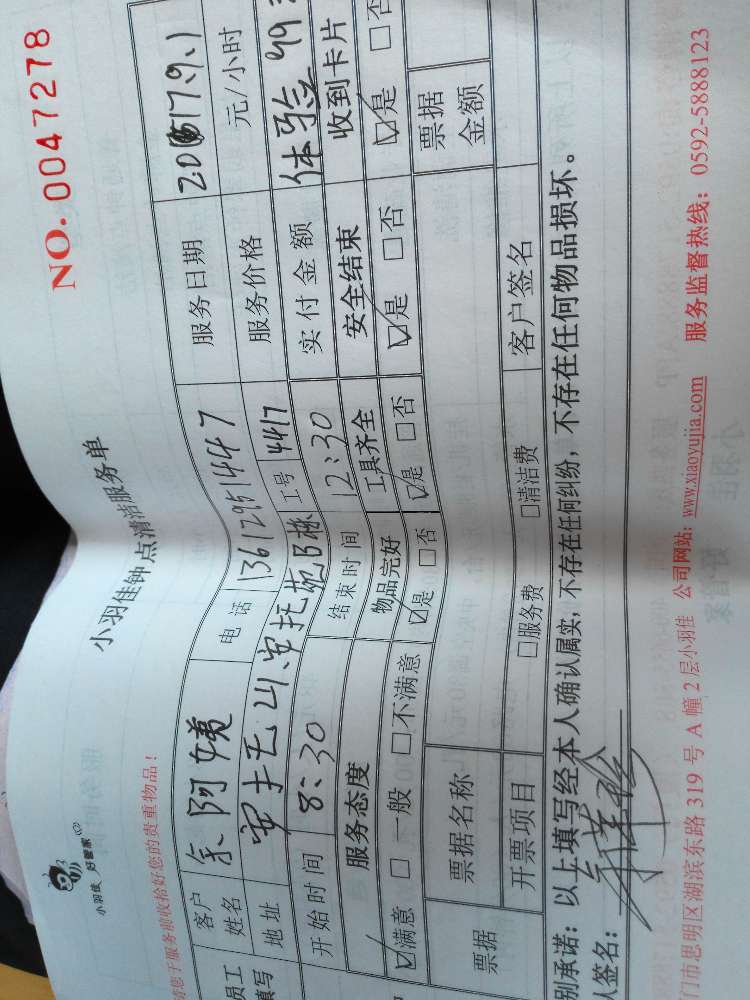 小羽佳 好管家
小羽佳钟点清洁服务单
NO. 0047278
请您于服务前收拾好您的贵重物品！
员工填写
客户姓名 余阿姨 电话 13612951447 服务日期 2017.9.1
地址 工号 4417 服务价格 元/小时
开始时间 8:30 结束时间 12:30 实付金额 体验 99
服务态度 物品完好 工具齐全 安全结束 收到卡片
☑满意 □一般 □不满意 ☑是 □否 ☑是 □否 ☑是 □否 ☑是 □否
票据 票据名称 票据金额
开票项目 □服务费 □清洁费 客户签名
别承诺：以上填写经本人确认属实，不存在任何纠纷，不存在任何物品损坏。
人签名：
门市思明区湖滨东路 319 号 A 幢 2 层小羽佳 公司网站：www.xiaoyujia.com 服务监督热线：0592-5888123